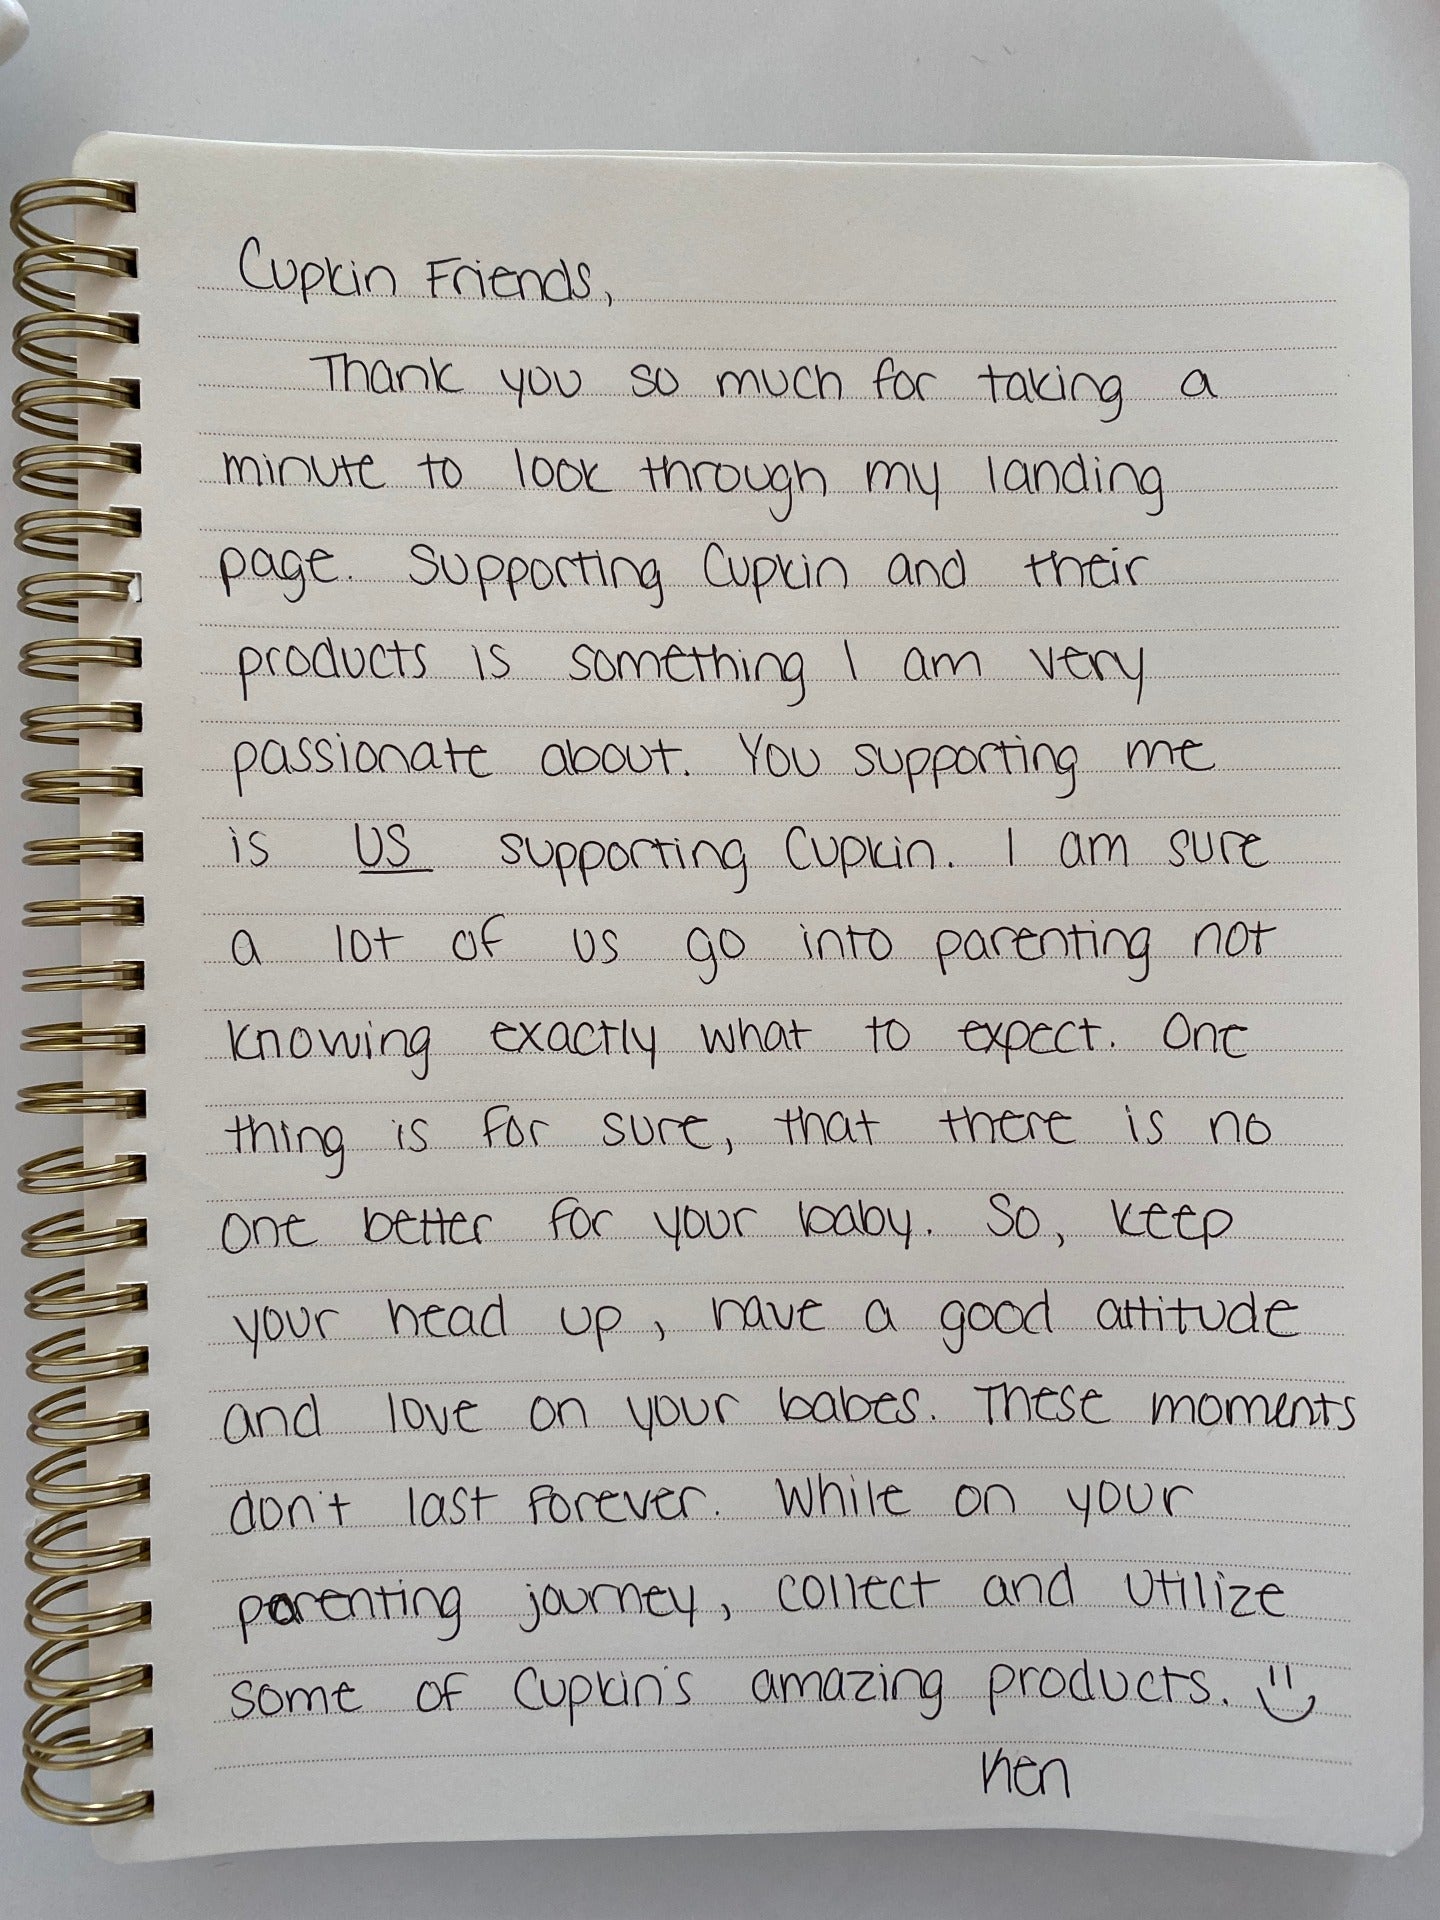 Cupkin Friends,
Thank you so much for taking a
minute to look through my landing
page. Supporting Cupkin and their
products is something I am very
passionate about. You supporting me
is US supporting Cupkin. I am sure
a lot of us go into parenting not
knowing exactly what to expect. One
thing is for sure, that there is no
one better for your baby. So, keep
your head up, have a good attitude
and love on your babes. These moments
don't last forever. While on your
parenting journey, collect and utilize
some of Cupkin's amazing products. :)
Ken